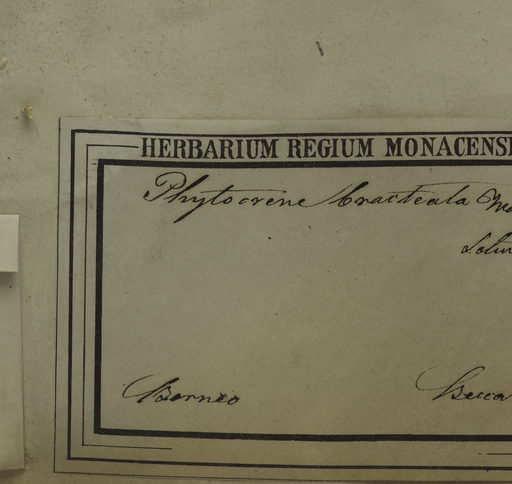 HERBARIUM REGIUM MONACENS
Phytocrene bracteata
Borneo Becca